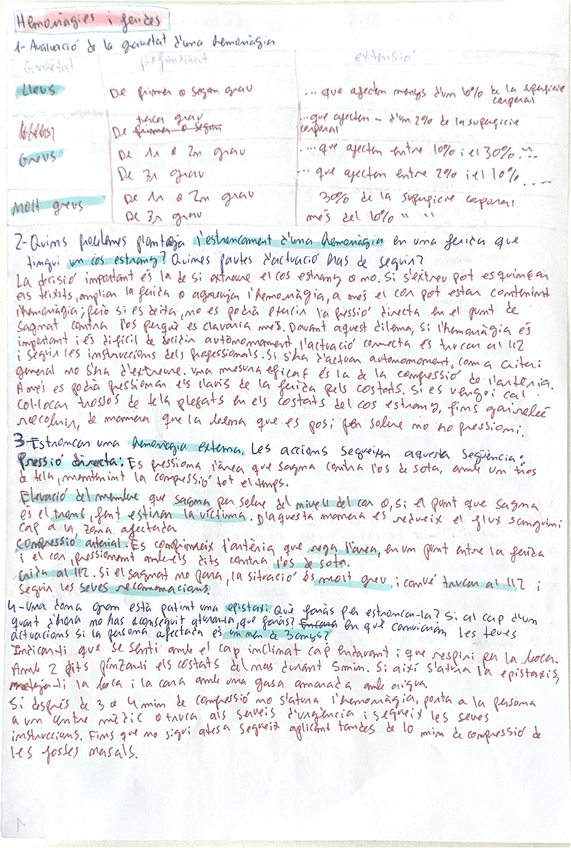 Hemorràgies i ferides
1- Avaluació de la gravetat d'una hemorràgia
Gravetat profunditat extensió
Lleus De primer o segon grau ...que afecten menys d'un 10% de la superfície corporal
tercer grau
De primer o segon ...que afecten - d'un 2% de la superfície corporal
Greus De 1r o 2n grau ...que afecten entre 10% i el 30% ...
De 3r grau ...que afecten entre 2% i el 10% ...
Molt greus De 1r o 2n grau 30% de la superfície corporal
De 3r grau més del 10% " "
2- Quins problemes planteja l'estroncament d'una hemorràgia en una ferida que
tingui un cos estrany? Quines pautes d'actuació has de seguir?
La decisió important és la de si extreure el cos estrany o no. Si s'extreu pot esquinçar
els teixits, ampliar la ferida o agreujar l'hemorràgia, a més el cos pot estar contenint
l'hemorràgia; però si es deixa, no es podrà exercir la pressió directa en el punt de
sagnat contra l'os perquè es clavaria més. Davant aquest dilema, si l'hemorràgia és
important i és difícil de decidir autònomament, l'actuació correcta és trucar al 112
i seguir les instruccions dels professionals. Si s'ha d'actuar autònomament, com a criteri
general no s'ha d'extreure. Una mesura eficaç és la de la compressió de l'artèria.
A més es podrà pressionar els llavis de la ferida pels costats. Si es vengui cal
col·locar trossos de tela plegats en els costats del cos estrany, fins gairebé
recobrir, de manera que la bena que es posi per sobre no no pressioni.
3- Estroncar una hemorràgia externa. Les accions segueixen aquesta seqüència:
Pressió directa: Es pressiona l'àrea que sagna contra l'os de sota, amb un tros
de tela, mantenint la compressió tot el temps.
Elevació del membre que sagna per sobre del nivell del cor o, si el punt que sagna
és el tronc, fent estirar la víctima. D'aquesta manera es redueix el flux sanguini
cap a la zona afectada
Compressió arterial: Es comprimeix l'artèria que rega l'àrea, en un punt entre la ferida
i el cor, pressionant amb els dits contra l'os de sota.
Crida al 112. Si el sagnat no para, la situació és molt greu i convé trucar al 112 i
seguir les seves recomanacions.
4- Una dona gran està patint una epistaxi. Què faràs per estroncar-la? Si al cap d'un
quart d'hora no has aconseguit aturarla, què faràs? En què canviarien les teves
actuacions si la persona afectada és un nen de 3 anys?
Indicant que se senti amb el cap inclinat cap endavant i que respiri per la boca.
Amb 2 dits pinzant els costats del nas durant 5 min. Si així s'atura la epistaxis,
netejant la boca i la cara amb una gasa amarada amb aigua.
Si després de 3 o 4 min de compressió no s'atura l'hemorràgia, porta a la persona
a un centre mèdic o truca als serveis d'urgència i segueix les seves
instruccions. Fins que no sigui atesa segueix aplicant tandes de 10 min de compressió de
les fosses nasals.